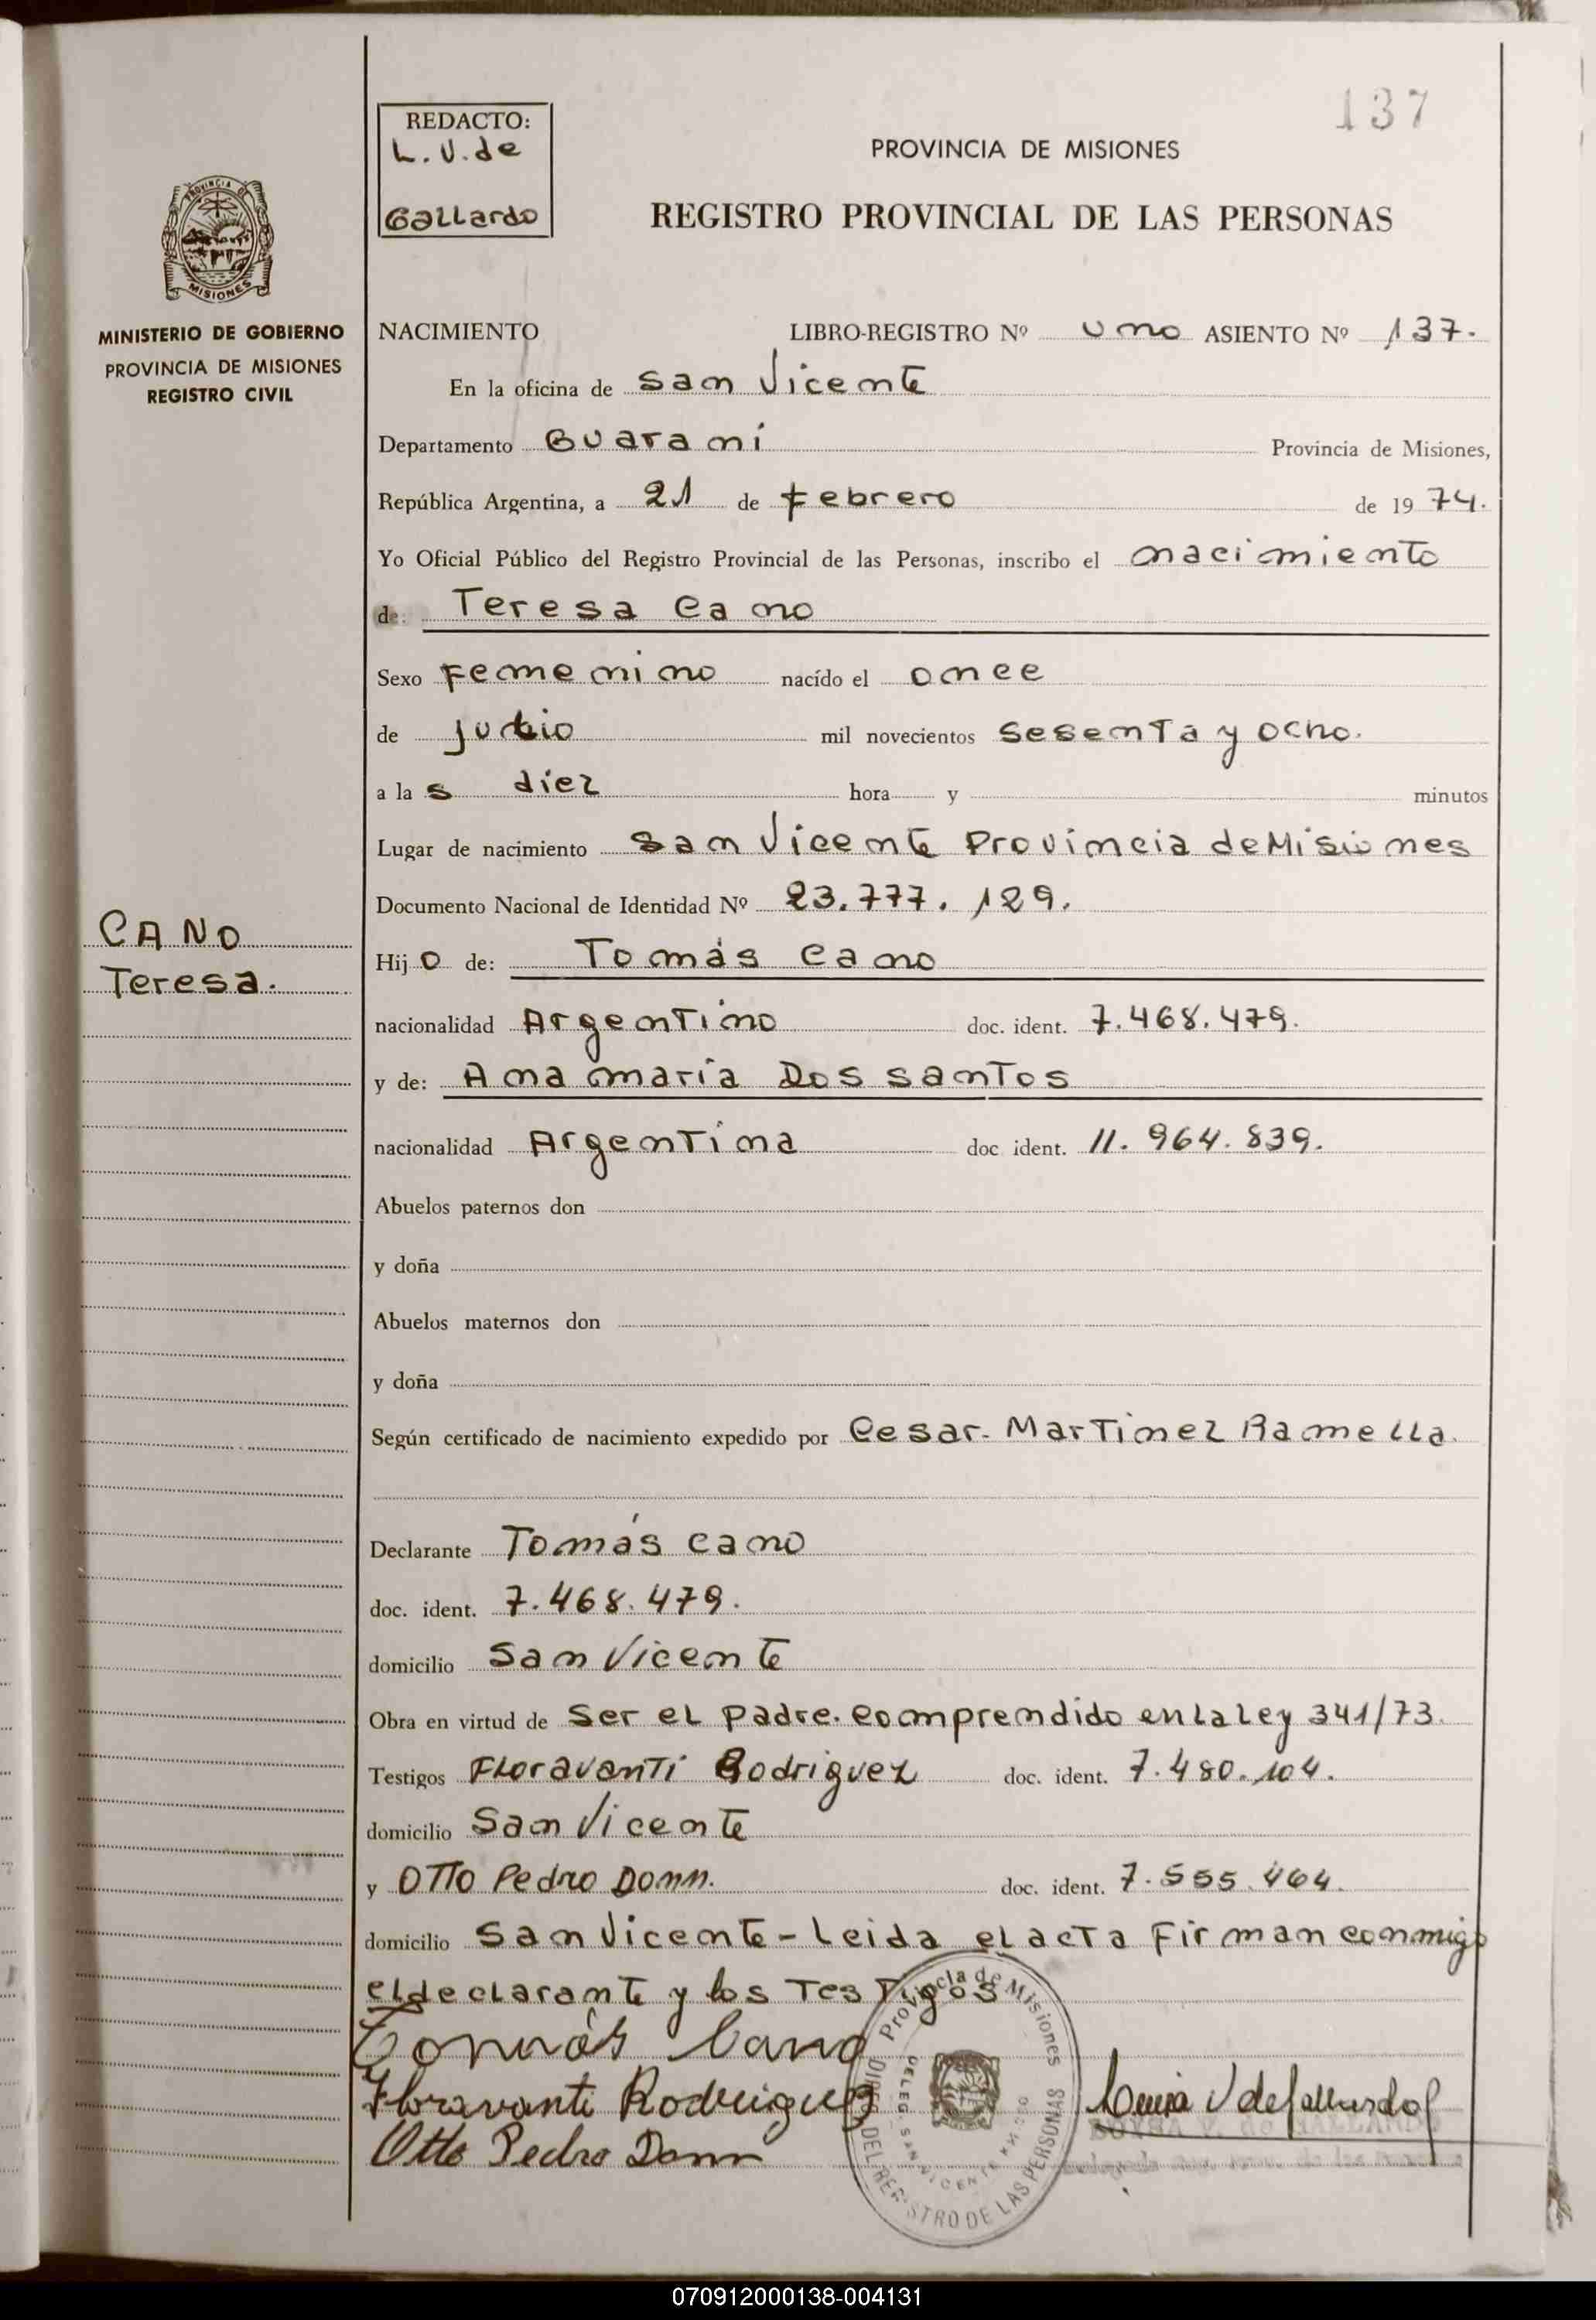 137
REDACTO:
L.V.de
Gallardo
PROVINCIA DE MISIONES
REGISTRO PROVINCIAL DE LAS PERSONAS
PROVINCIA DE
MISIONES
MINISTERIO DE GOBIERNO
PROVINCIA DE MISIONES
REGISTRO CIVIL
NACIMIENTO LIBRO-REGISTRO Nº uno ASIENTO Nº 137.
En la oficina de San Vicente
Departamento Guaraní Provincia de Misiones,
República Argentina, a 21 de febrero de 1974.
Yo Oficial Público del Registro Provincial de las Personas, inscribo el nacimiento
de: Teresa Cano
Sexo Femenino nacído el once
de julio mil novecientos sesenta y ocho.
a la s diez hora y minutos
Lugar de nacimiento San Vicente Provincia de Misiones
Documento Nacional de Identidad Nº 23.777.129.
CANO
Teresa.
Hij o de: Tomás Cano
nacionalidad Argentino doc. ident. 7.468.479.
y de: Ana maría Dos santos
nacionalidad Argentina doc. ident. 11.964.839.
Abuelos paternos don
y doña
Abuelos maternos don
y doña
Según certificado de nacimiento expedido por Cesar Martinez Ramella.
Declarante Tomás Cano
doc. ident. 7.468.479.
domicilio San Vicente
Obra en virtud de ser el padre. comprendido en la Ley 341/73.
Testigos Floravanti Rodriguez doc. ident. 7.480.104.
domicilio San Vicente
y Otto Pedro Donn. doc. ident. 7.555.464.
domicilio San Vicente - Leida el acta firman conmigo
el declarante y los Testigos
Tomás Cano
Floravanti Rodriguez
Otto Pedro Donn
Provincia de Misiones
DELEG. SAN VICENTE
DIR. DEL REGISTRO DE LAS PERSONAS
Luisa V de Gallardo
070912000138-004131